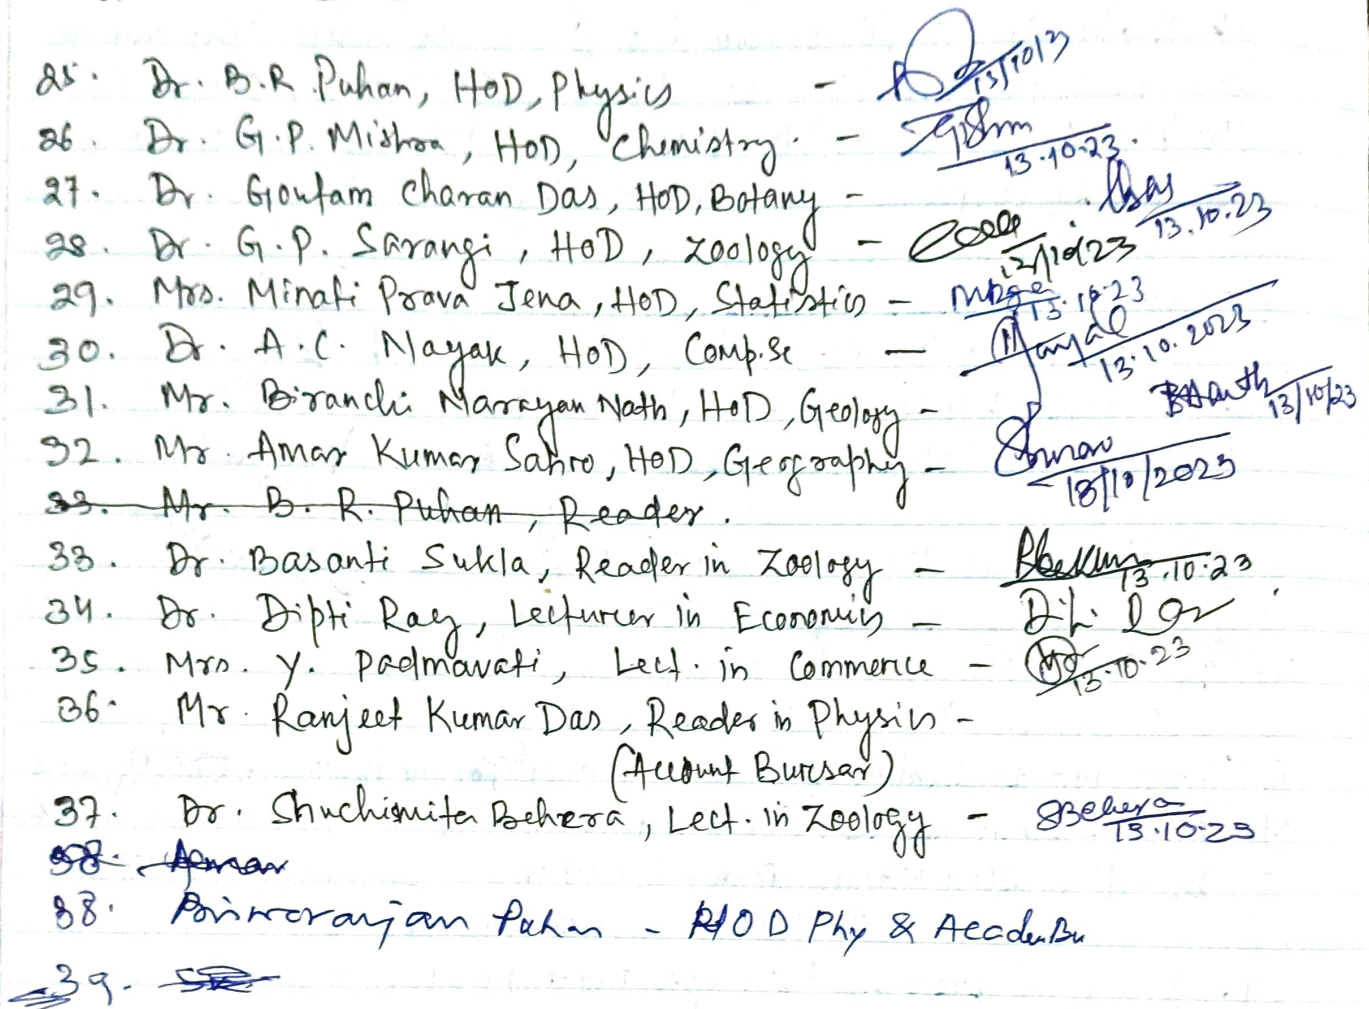 25. Dr. B.R. Puhan, HoD, Physics - 13/10/23
26. Dr. G.P. Mishra, HoD, Chemistry - 13.10.23.
27. Dr. Goutam Charan Das, HoD, Botany - 13.10.23
28. Dr. G.P. Sarangi, HoD, Zoology - 13/10/23
29. Mrs. Minati Prava Jena, HoD, Statistics - 13.10.23
30. Dr. A.C. Nayak, HoD, Comp.Sc - Nayak 13.10.2023
31. Mr. Biranchi Narayan Nath, HoD, Geology - BNNath 13/10/23
32. Mr. Amar Kumar Sahoo, HoD, Geography - 13/10/2023
33. Mr. B. R. Puhan, Reader.
33. Dr. Basanti Sukla, Reader in Zoology - 13.10.23
34. Dr. Dipti Ray, Lecturer in Economics -
35. Mrs. Y. Padmavati, Lect. in Commerce - 13.10.23
36. Mr. Ranjeet Kumar Das, Reader in Physics -
(Account Bursar)
37. Dr. Shuchismita Behera, Lect. in Zoology - SBehera 13.10.23
38.
38. Puhan - HOD Phy &
39.